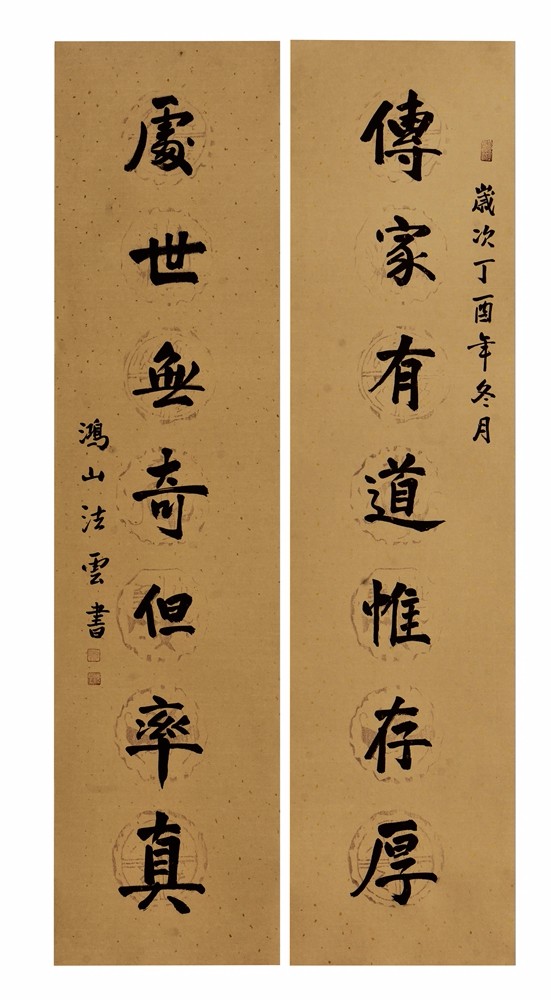 歲次丁酉年冬月
傳家有道惟存厚
處世無奇但率真
鴻山法雲書